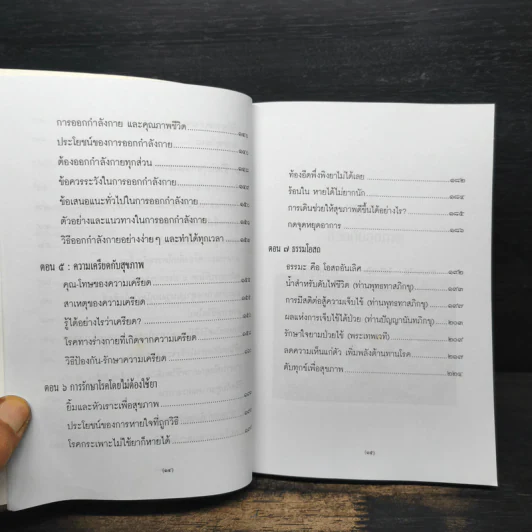 การออกกำลังกาย และคุณภาพชีวิต
ประโยชน์ของการออกกำลังกาย
ต้องออกกำลังกายทุกส่วน
ข้อควรระวังในการออกกำลังกาย
ข้อเสนอแนะทั่วไปในการออกกำลังกาย
ตัวอย่างและแนวทางในการออกกำลังกาย
วิธีออกกำลังกายอย่างง่าย ๆ และทำได้ทุกเวลา
ตอน ๕ : ความเครียดกับสุขภาพ
คุณ-โทษของความเครียด
สาเหตุของความเครียด
รู้ได้อย่างไรว่าเครียด?
โรคทางร่างกายที่เกิดจากความเครียด
วิธีป้องกัน-รักษาความเครียด
ตอน ๖ การรักษาโรคโดยไม่ต้องใช้ยา
ยิ้มและหัวเราะเพื่อสุขภาพ
ประโยชน์ของการหายใจที่ถูกวิธี
โรคกระเพาะไม่ใช้ยาก็หายได้
(๑๔)
ท้องอืดพึ่งพิงยาไม่ได้เลย ๑๘๒
ร้อนใน หายได้ไม่ยากนัก ๑๘๔
การเดินช่วยให้สุขภาพดีขึ้นได้อย่างไร? ๑๘๕
กดจุดหยุดอาการ ๑๘๘
ตอน ๗ ธรรมโอสถ
ธรรมะ คือ โอสถอันเลิศ ๑๙๒
น้ำสำหรับดับไฟชีวิต (ท่านพุทธทาสภิกขุ) ๑๙๓
การมีสติต่อสู้ความเจ็บไข้ (ท่านพุทธทาสภิกขุ) ๑๙๗
ผลแห่งการเจ็บไข้ได้ป่วย (ท่านปัญญานันทภิกขุ) ๒๐๓
รักษาใจยามป่วยไข้ (พระเทพเวที) ๒๐๙
ลดความเห็นแก่ตัว เพิ่มพลังต้านทานโรค ๒๑๗
ดับทุกข์เพื่อสุขภาพ ๒๒๔
(๑๕)